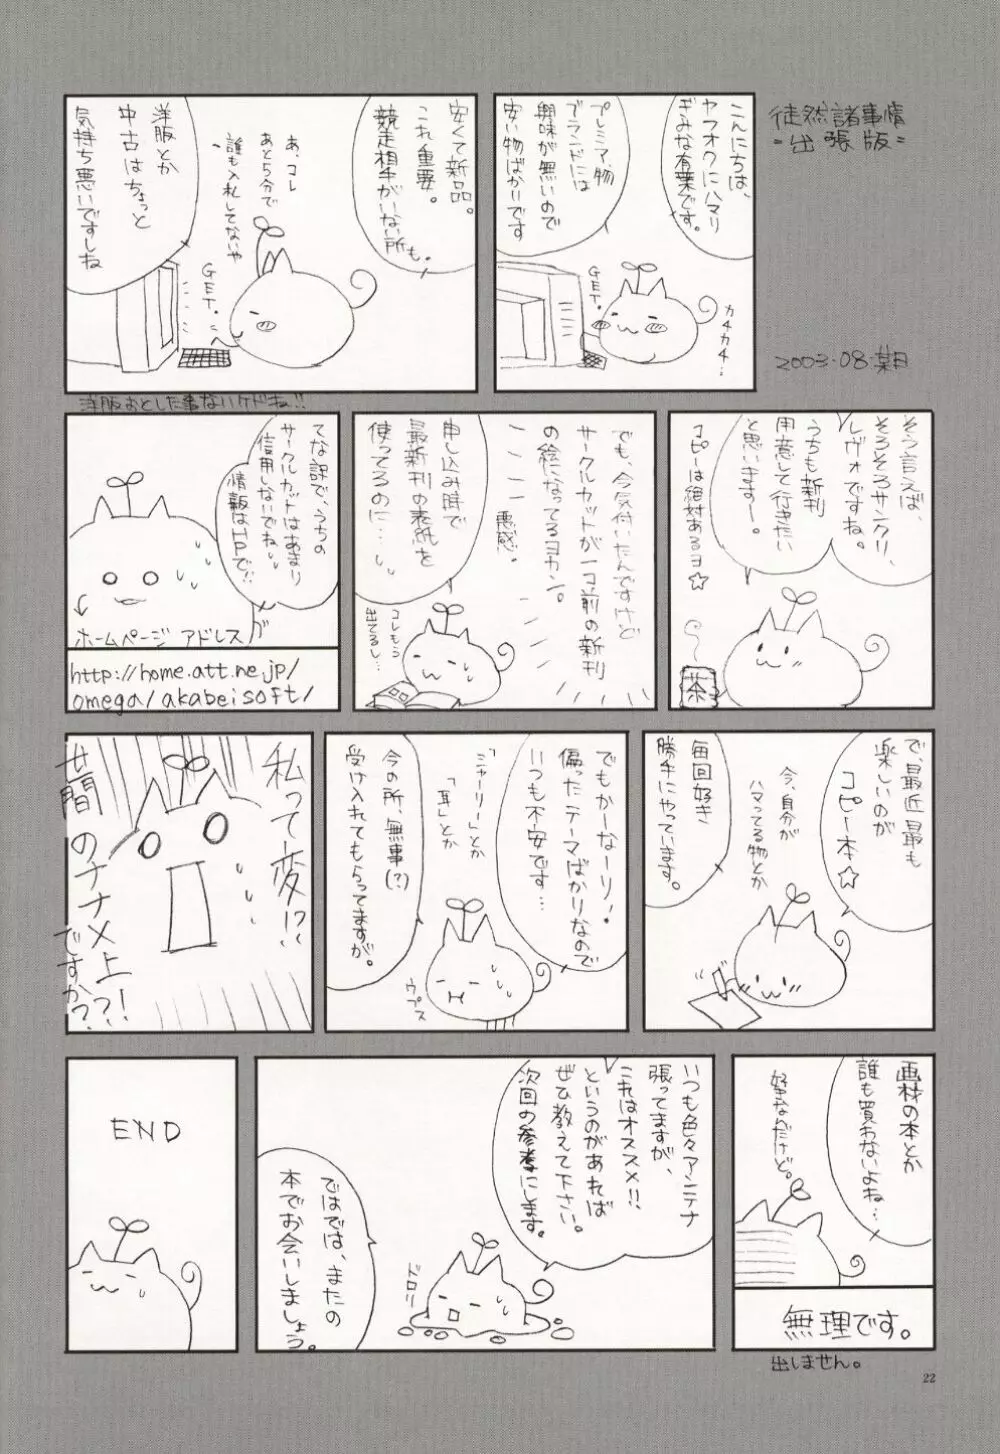 徒然諸事情
-出張版-
2003・08・某日
こんにちは、
ヤフオクにハマり
ぎみな有葉です。
プレミア物
ブランドには
興味が無いので
安い物ばかりです
GET。
カチカチ…
安くて新品。
これ重要。
競走相手がいない所も。
あ、コレ
あと5分で
誰も入札してないや
GET。
洋服とか
中古はちょっと
気持ち悪いですしね
洋服おとした事ないケドね!!
そう言えば、
そろそろサンクリ、
レヴォですね。
うちも新刊
用意して行きたい
と思いますー。
コピーは絶対あるヨ☆
茶
でも、今気付いたんですけど
サークルカットが一コ前の新刊
の絵になってるヨカン。
悪感。
申し込み時で
最新刊の表紙を
使ってるのに…
コレもう
出てるし…
てな訳で、うちの
サークルカットはあまり
信用しないでね
情報はHPで
ホームページ アドレス
http://home.att.ne.jp/
omega/akabeisoft/
で、最近最も
楽しいのが
コピー本☆
今、自分が
ハマってる物とか
毎回好き
勝手にやっています。
でもかーなーり、
偏ったテーマばかりなので
いつも不安です…
「シャーリー」とか
「耳」とか
今の所、無事(?)
受け入れてもらってますが。
ウプス
私って変!?
世間のナナメ上?!
ですか??
画材の本とか
誰も買わないよね…
好きなんだけど。
無理です。
出しません。
いつも色々アンテナ
張ってますが、
これはオススメ!!
というのがあれば
ぜひ教えて下さい。
次回の参考にします。
ドロリ
ではでは、またの
本でお会いしましょう。
END
22